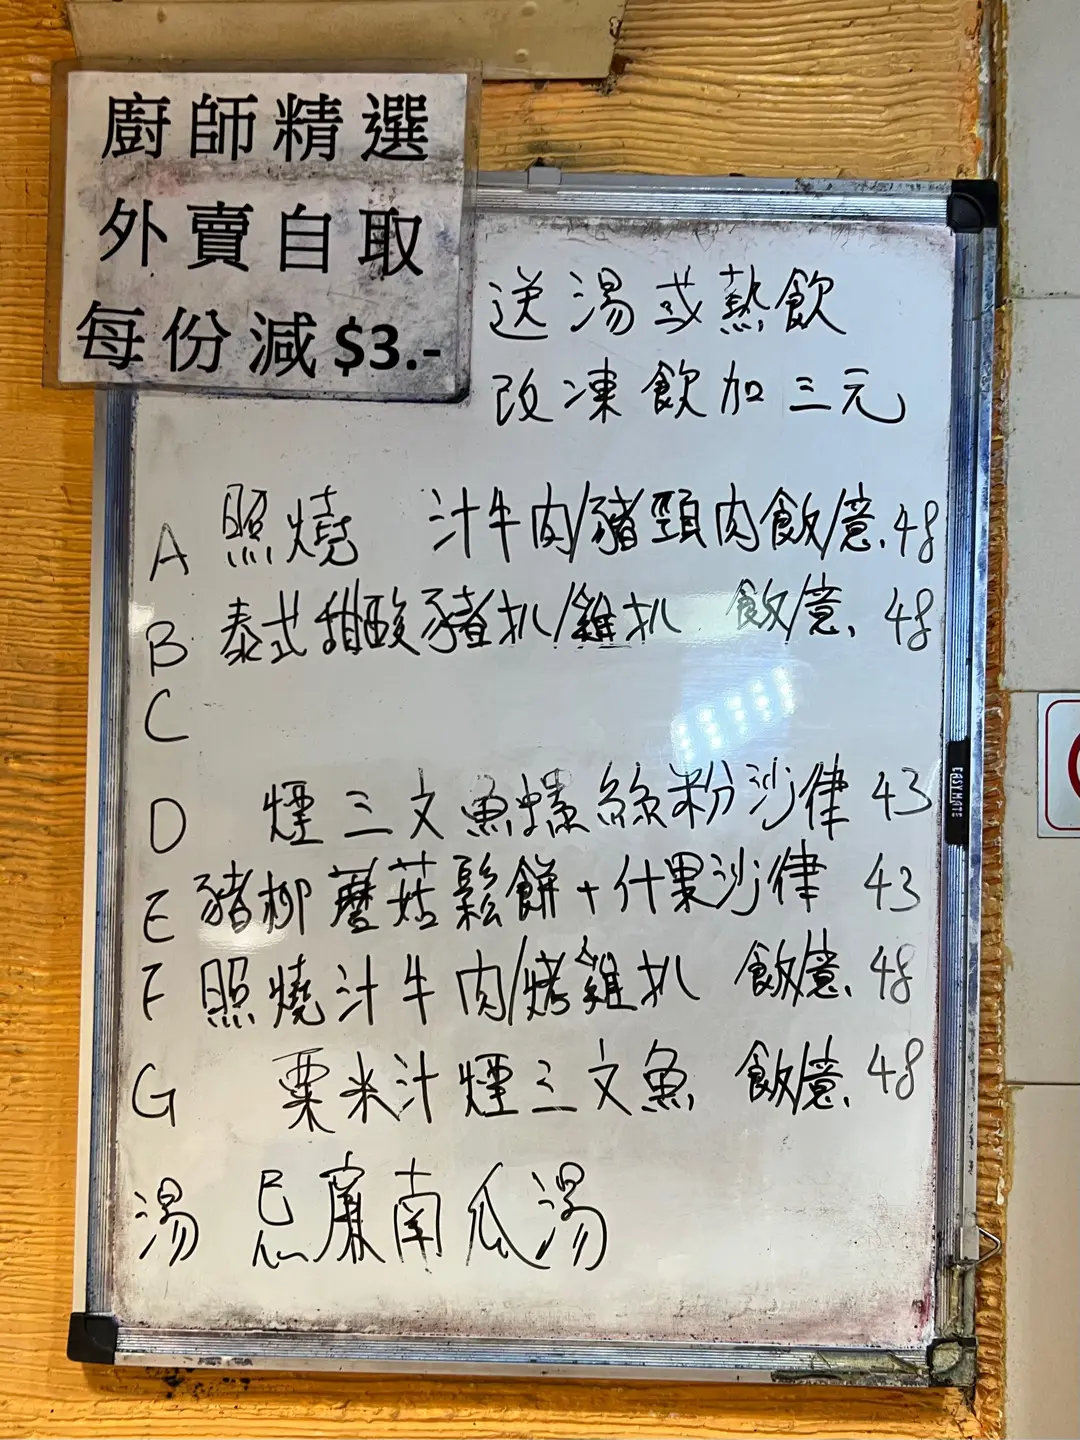 廚師精選
外賣自取
每份減$3.-
送湯或熱飲
改凍飲加三元
A 照燒 汁牛肉/豬頸肉飯/意.48
B 泰式甜酸豬扒/雞扒 飯/意.48
C
D 煙三文魚螺絲粉沙律 43
E 豬柳蘑菇鬆餅+什果沙律 43
F 照燒汁牛肉/烤雞扒 飯/意.48
G 粟米汁煙三文魚 飯/意.48
湯 忌廉南瓜湯
EASYMATE